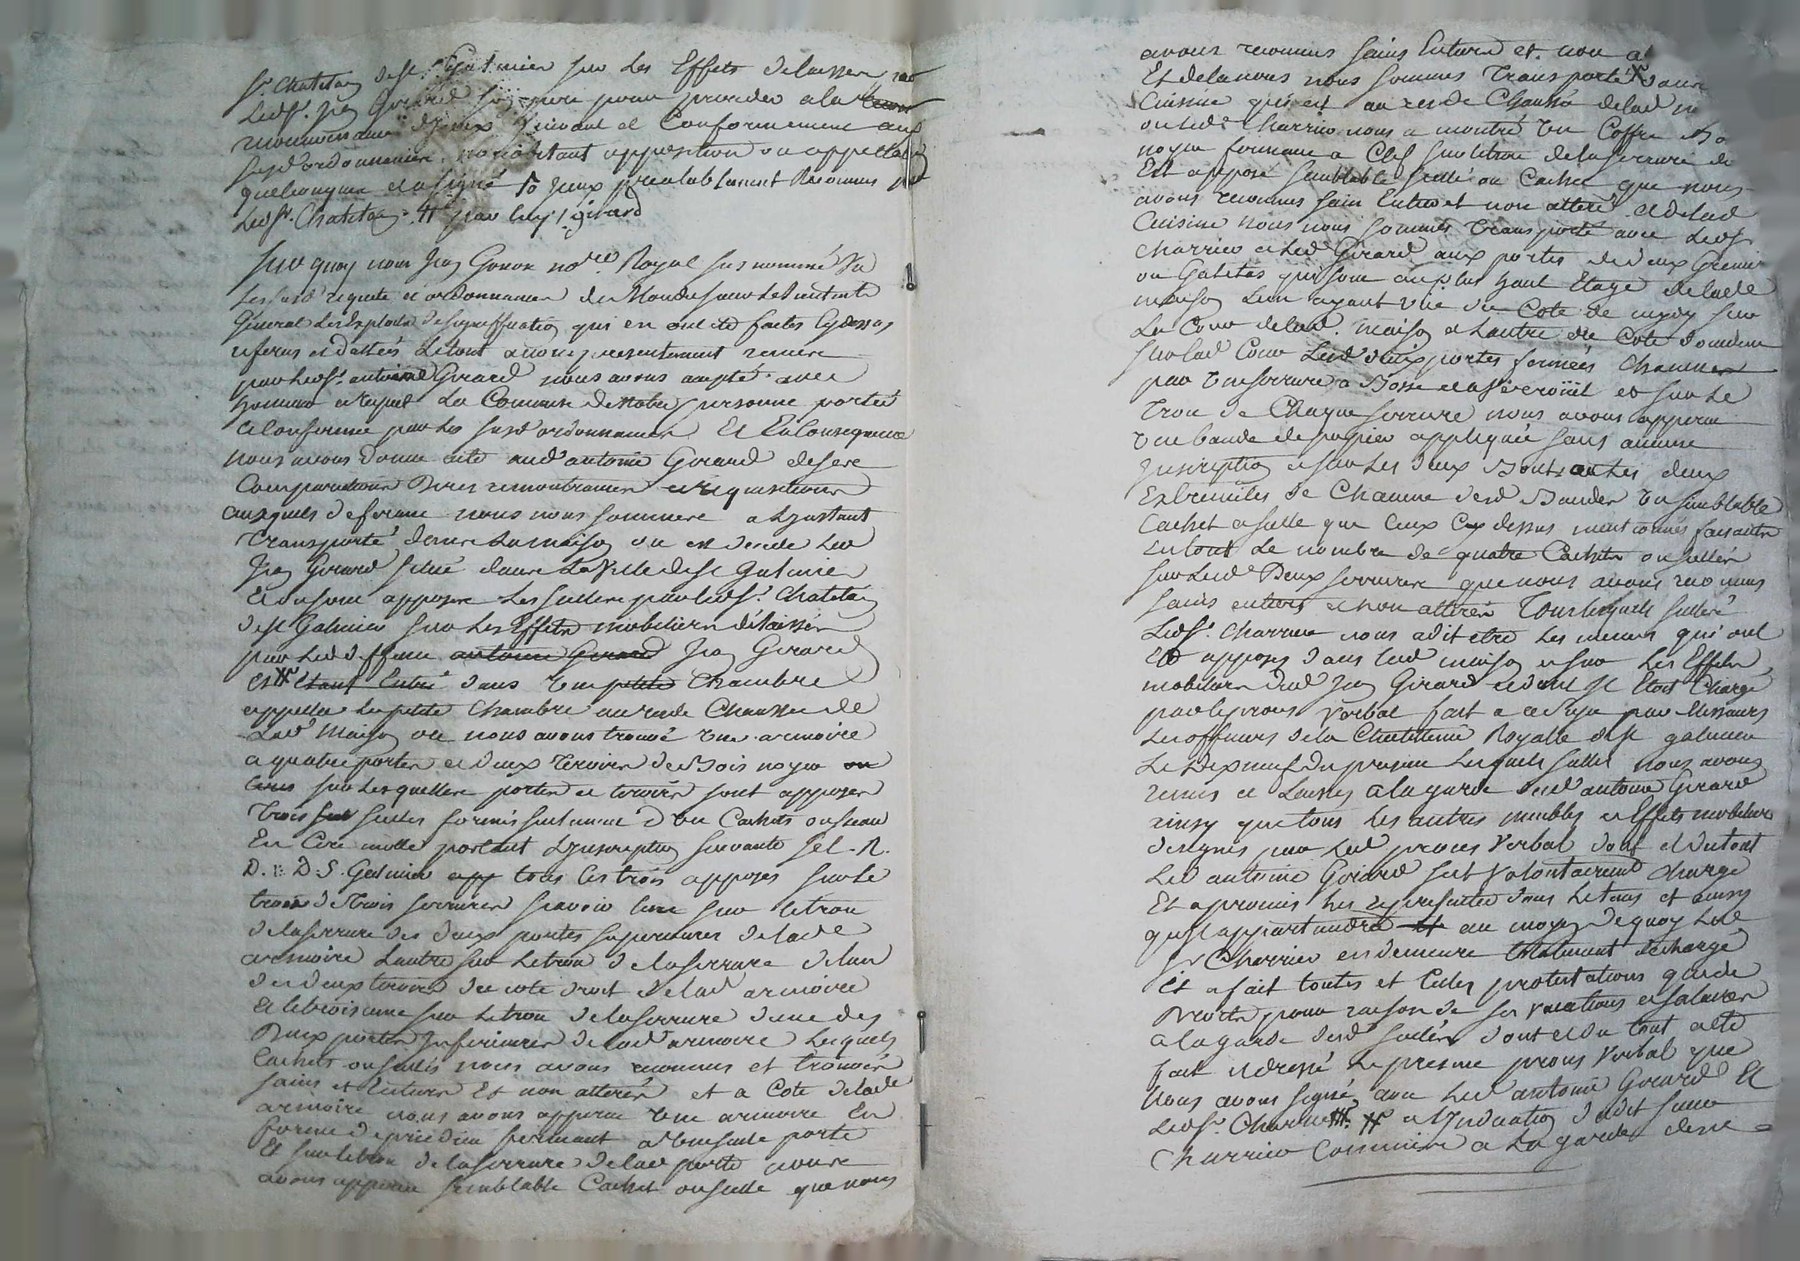 Sr. Chatelain de St. Galmier sur les Effets delaissés par
Ledsr. Jean Girard son pere pour proceder a la
reconnoissance d'yceux suivant et Conformement aux
susd. ordonnances, nonobstant opposition ou appellation
quelconque et a signé
Ledsr. Chatelain par luy /. girard
Sur quoy nous Jean Gonon nore. Royal susnommé Vu
Les susd. requete et ordonnance de Monsieur le Lieutenant
Général Les Exploits de signiffication qui en ont été faites cydessus
referus et dattés Le tout a nous presentement remis
par Ledsr. antoine Girard nous avons accepté avec
honneur et respet La Commission de notre personne portée
et Conferée par Les susd. ordonnances. Et En Consequence
nous avons Donné acte aud. antoine Girard de ses
Comparutions Dires remontrances et requisitions
auxquels deferant nous nous sommes a L'ynstant
Transporté dans La maison ou est decedé Led.
Jean Girard situé dans La Ville de St Galmier
Et ou sont apposés Les scellés par Ledsr. Chatelain
de St Galmier sur Les Effets mobiliers délaissés
par Led. deffunt antoine Girard Jean Girard
Et étant Entré dans une petite Chambre
appellée La petite Chambre au rez de Chaussée de
Lad. Maison ou nous avons trouvé une armoire
a quatre portes et deux tiroirs de Bois noyer
sur Lesquelles portes et tiroirs sont apposés
Trois scellés formés d'un Cachet ou sceau
En Cire molle portant L'ynscription suivante Sel. R.
D. D. S. Galmier app tous les trois apposés sur Le
trou de trois serrures scavoir l'un sur le trou
de la serrure des deux portes superieures de lad.
armoire L'autre sur Le trou de la serrure de l'un
des deux tiroirs du coté droit de lad. armoire
Et le troisieme sur Le trou de la serrure d'une des
Deux portes Inferieures de lad. armoire Lesquels
Cachets ou scellés nous avons reconnus et trouvés
sains et Entiers Et non alterés et a Coté de lad.
armoire nous avons apperçu une armoire En
forme de priedieu fermant a une seule porte
Et sur le trou de la serrure de lad. porte nous
avons apperçu semblable Cachet ou scellé que nous
avons reconnus sains Entiers et non a
Et de la nous nous sommes Transporté dans
Cuisine qui est au rez de Chaussé de lad. m
ou Led. Charrier nous a montré un Coffre Bo
noyer fermant a Clef sur le trou de la serrure du
Est apposé semblable scellé ou Cachet que nous
avons reconnus sain Entier et non alteré et de lad.
Cuisine nous nous sommes Transporté avec Ledsr.
Charrier et Led. Girard aux portes de deux Greniers
ou Galetas qui sont au plus haut Etage de lad.
maison L'un ayant vue du Coté de midy sur
La Cour de lad. Maison et L'autre du Coté
sur lad. Cour Lesd. deux portes fermées Chacune
par une serrure a Bosse et a Veroüil et sur Le
Trou de Chaque serrure nous avons apperçu
une bande de papier appliquée sans aucune
Jnscription et sur Les deux Bouts ou Les deux
Extremités de Chacune desd. Bandes un semblable
Cachet et scellé que Ceux Cy dessus mentionnés faisant
En tout Le nombre de quatre Cachets ou scellés
sur Lesd. Deux serrures que nous avons reconnus
sains entiers et non alterés Tous lesquels scellés
Ledsr. Charrier nous a dit etre Les memes qui ont
Eté apposés dans lad. maison et sur Les Effets
mobiliers dud. Jean Girard et dont Il s'étoit Chargé
par le procés Verbal fait a ce sujet par Messieurs
Les officiers de la Chatellenie Royalle de St galmier
Le Dix neuf du present Lesquels scellés nous avons
remis et Laissés a la garde dud. antoine Girard
ainsy que tous Les autres meubles et Effets mobiliers
designés par Led. procés Verbal dont et du tout
Led. antoine Girard s'est Volontairement Chargé
Et a promis Les representer dans Le tems et ainsy
qu'il appartiendra au moyen de quoy Led.
Sr Charrier en demeure totalement dechargé
Et a fait toutes et telles protestations que de
Droit pour raison de ses vacations et salaires
a la garde desd. scellés dont et du tout acte
fait et dressé Le present procés Verbal que
Nous avons signé avec Led. antoine Girard Et
Ledsr. Charrier a L'Jndication dudit sieur
Charrier Commis a La garde desd. =